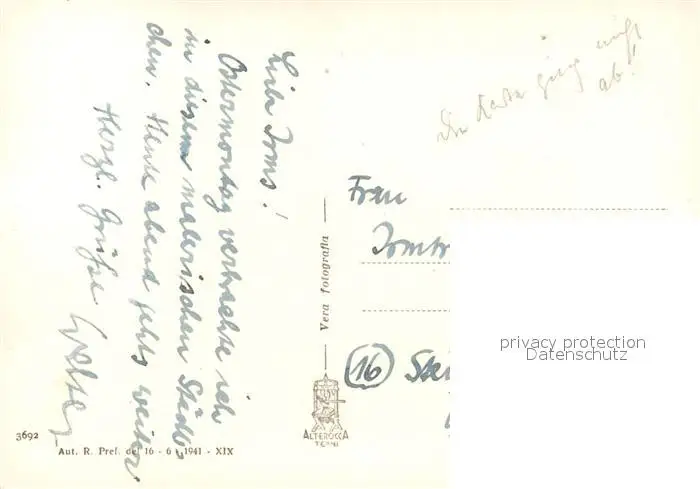 Liebe Irms!
Ostermontag verbrachte ich
in diesem malerischen Städt-
chen. Heute abend gehts weiter
Herzl. Grüße
Die Karte ging nicht
ab!
Frau
Irmtr
(16) Stei
privacy protection
Datenschutz
Vera fotografia
ALTEROCCA
TERNI
3692
Aut. R. Pref. del 16 - 6 - 1941 - XIX